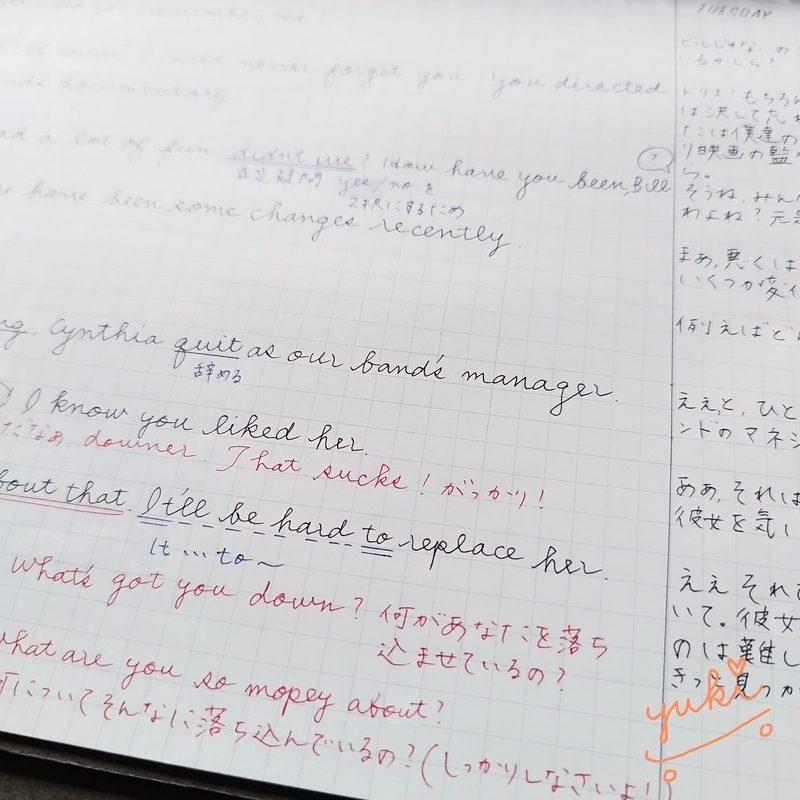 TUESDAY
Do you remember me?
of course I could never forget you you directed
documentary.
ad a lot of fun didn't we? How have you been, Bill
否定疑問 yes/no を
2択にするため
?
e have been some changes recently.
ng. Cynthia quit as our band's manager.
辞める
I know you liked her.
だなあ downer. That sucks! がっかり!
bout that. It'll be hard to replace her.
It … to ~
What's got you down? 何があなたを落ち
込ませているの?
what are you so mopey about?
何についてそんなに落ち込んでいるの?(しっかりしなさいよ!)
ビルじゃないの
いるかしら?
ドリス!もちろん
は決して忘れ
たは僕達の
り映画の監
ら。
そうね、みん
わよね?元気
まあ,悪くは
いくつか変化
例えばど
ええと,ひと
ンドのマネジ
ああ,それは
彼女を気に
ええ それで
いて。彼女
のは難し
きっと見つか
yuki